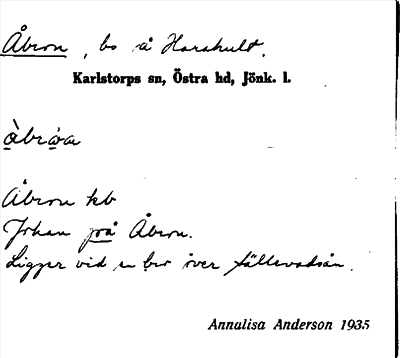 Åbron, bs å Harshult.
Karlstorps sn, Östra hd, Jönk. l.
åbróa
Åbron kb
Johan på Åbron.
Ligger vid en bro över Fällevadsån.
Annalisa Anderson 1935